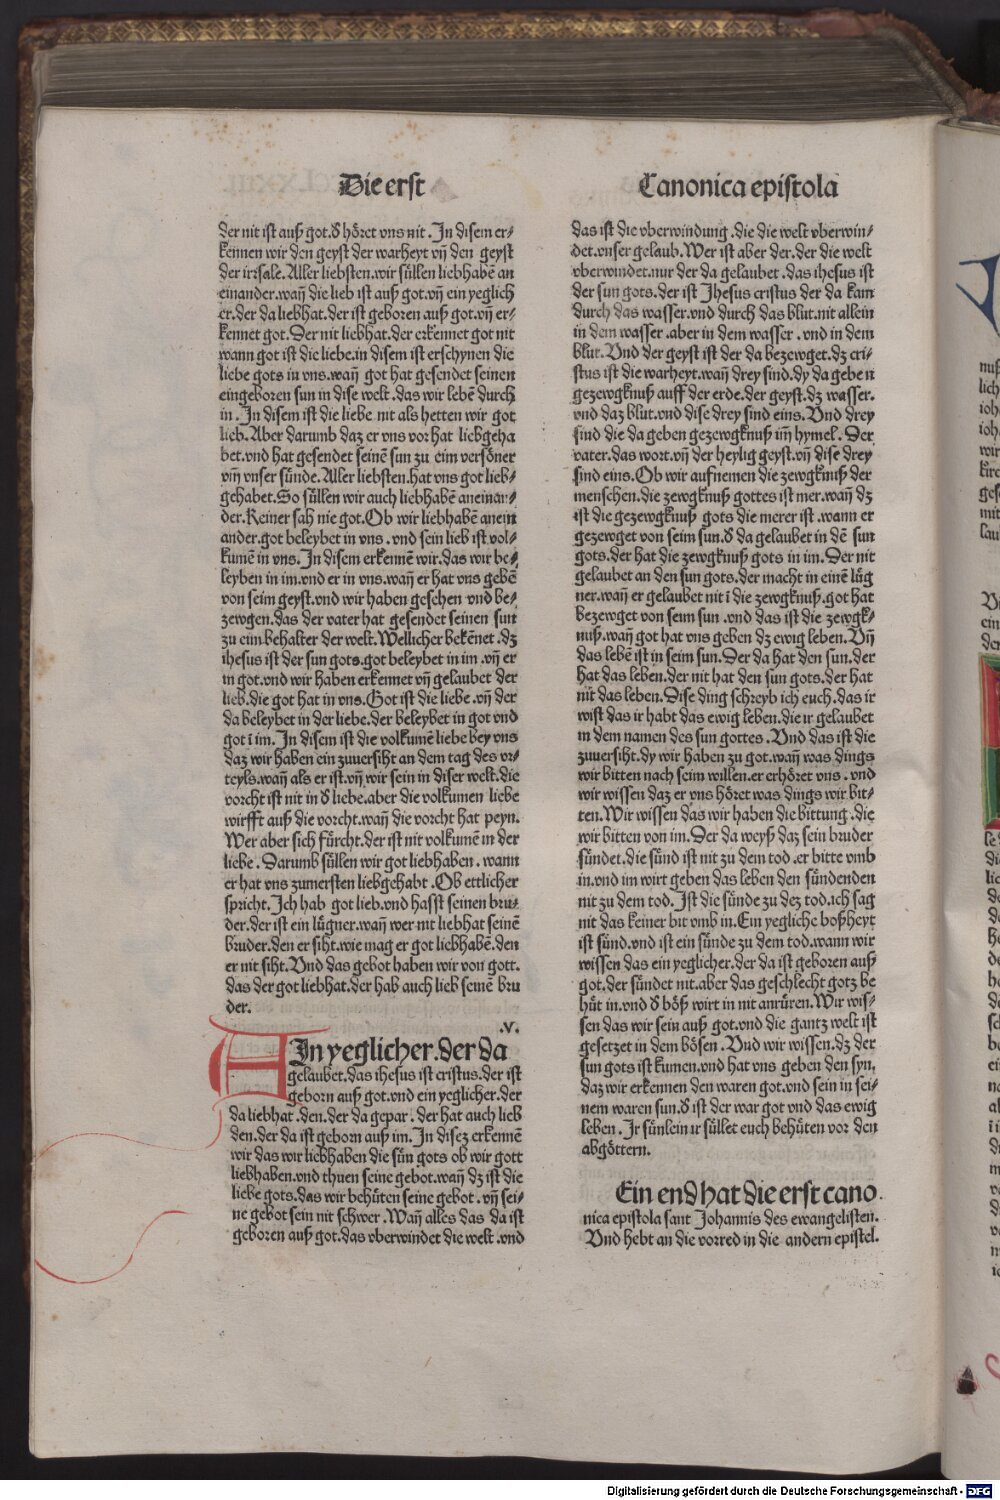 Die erst
der nit ist auß got.d̕ höret vns nit. In disem er-
kennen wir den geyst der warheyt vn̄ den geyst
der irrsale. Aller liebsten.wir süllen liebhabē an
einander.wan̄ die lieb ist auß got.vn̄ ein yeglich
er.der da liebhat.der ist geboren auß got.vn̄ er-
kennet got. Der nit liebhat.der erkennet got nit
wann got ist die liebe.in disem ist erschynen die
liebe gots in vns.wan̄ got hat gesendet seinen
eingeboren sun in dise welt.das wir lebē durch
in. In disem ist die liebe nit als hetten wir got
lieb. Aber darumb daz er vns vor hat liebgeha
bet.vnd hat gesendet seinē sun zu eim versöner
vm̄ vnser sünde. Aller liebsten.hat vns got lieb-
gehabet.So süllen wir auch liebhabē aneinan-
der.Keiner sah nie got.Ob wir liebhabē anein
ander.got beleybet in vns.vnd sein lieb ist vol-
kumē in vns. In disem erkennē wir.das wir be-
leyben in im.vnd er in vns.wan̄ er hat vns gebē
von seim geyst.vnd wir haben gesehen vnd be-
zewgen.das der vater hat gesendet seinen sun
zu eim behalter der welt.Wellicher bekēnet.dz
ihesus ist der sun gots.got beleybet in im.vn̄ er
in got.vnd wir haben erkennet vn̄ gelaubet der
lieb.die got hat in vns.Got ist die liebe.vn̄ der
da beleybet in der liebe.der beleybet in got vnd
got ī im. In disem ist die volkumē liebe bey vns
daz wir haben ein zuuersiht an dem tag des vr-
teyls.wan̄ als er ist.vn̄ wir sein in diser welt.die
vorcht ist nit in d̕ liebe.aber die volkumen liebe
wirfft auß die vorcht.wan̄ die vorcht hat peyn.
Wer aber sich fürcht.der ist nit volkumē in der
liebe. Darumb süllen wir got liebhaben. wann
er hat vns zumersten liebgehabt. Ob ettlicher
spricht.Ich hab got lieb.vnd hasst seinen bru-
der.der ist ein lügner.wan̄ wer nit liebhat seinē
bruder.den er siht.wie mag er got liebhabē.den
er nit siht.Vnd das gebot haben wir von gott.
das der got liebhat.der hab auch lieb seinē bru
der.
.V.
AIn yeglicher.der da
gelaubet.das ihesus ist cristus.der ist
geborn auß got.vnd ein yeglicher.der
da liebhat.den.der da gepar.der hat auch lieb
den.der da ist geborn auß im. In disez erkennē
wir das wir liebhaben die sün gots ob wir gott
liebhaben.vnd thuen seine gebot.wan̄ dz ist die
liebe gots.das wir behüten seine gebot.vn̄ sei-
ne gebot sein nit schwer.Wan̄ alles das da ist
geboren auß got.das vberwindet die welt.vnd
Canonica epistola
das ist die vberwindung.die die welt vberwin-
det.vnser gelaub.Wer ist aber der.der die welt
vberwindet.nur der da gelaubet.das ihesus ist
der sun gots.der ist Jhesus cristus der da kam
durch das wasser.vnd durch das blut.nit allein
in dem wasser.aber in dem wasser.vnd in dem
blut.Vnd der geyst ist der da bezewget.dz cri-
stus ist die warheyt.wan̄ drey sind.dy da geben
gezewgknuß auff der erde.der geyst.dz wasser.
vnd daz blut.vnd dise drey sind eins.Vnd drey
sind die da geben gezewgknuß im̄ hymel. Der
vater.das wort.vn̄ der heylig geyst.vn̄ dise drey
sind eins.Ob wir aufnemen die zewgknuß der
menschen.die zewgknuß gottes ist mer.wan̄ dz
ist die gezewgknuß gots die merer ist.wann er
gezewget von seim sun.d̕ da gelaubet in dē sun
gots.der hat die zewgknuß gots in im.Der nit
gelaubet an den sun gots.der macht in einē lüg
ner.wan̄ er gelaubet nit ī die zewgknuß.got hat
bezewget von seim sun.vnd das ist die zewgk-
nuß.wan̄ got hat vns geben dz ewig leben.Vn̄
das lebē ist in seim sun.Der da hat den sun.der
hat das leben.der nit hat den sun gots.der hat
nit das leben.Dise ding schreyb ich euch.das ir
wist das ir habt das ewig leben.die ir gelaubet
in dem namen des sun gottes. Vnd das ist die
zuuersiht.dy wir haben zu got.wan̄ was dings
wir bitten nach seim willen.er erhöret vns.vnd
wir wissen daz er vns höret was dings wir bit-
ten.Wir wissen das wir haben die bittung.die
wir bitten von im.Der da weyß daz sein bruder
sündet.die sünd ist nit zu dem tod.er bitte vmb
in.vnd im wirt geben das leben den sündenden
nit zu dem tod. Ist die sünde zu dez tod.ich sag
nit das keiner bit vmb in.Ein yegliche boßheyt
ist sünd.vnd ist ein sünde zu dem tod.wann wir
wissen das ein yeglicher.der da ist geboren auß
got.der sündet nit.aber das geschlecht gotz be
hüt in.vnd d̕ böß wirt in nit anrüren.Wir wis-
sen das wir sein auß got.vnd die gantz welt ist
gesetzet in dem bösen. Vnd wir wissen.dz der
sun gots ist kumen.vnd hat vns geben den syn.
daz wir erkennen den waren got.vnd sein in sei-
nem waren sun.d̕ ist der war got vnd das ewig
leben. Ir sünlein ir süllet euch behüten vor den
abgöttern.
Ein end hat die erst cano
nica epistola sant Johannis des ewangelisten.
Vnd hebt an die vorred in die andern epistel.
Digitalisierung gefördert durch die Deutsche Forschungsgemeinschaft - DFG